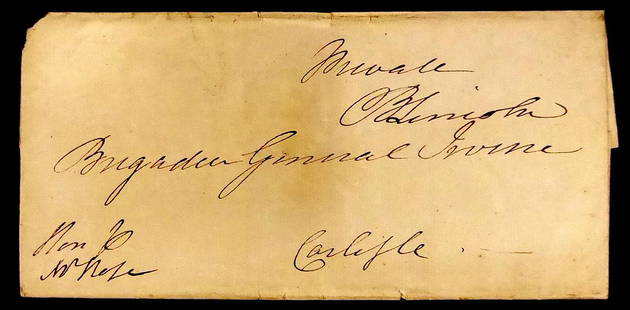 Private
B Lincoln
Brigadier General Irvine
Carlisle.
Hon
Mr Rose